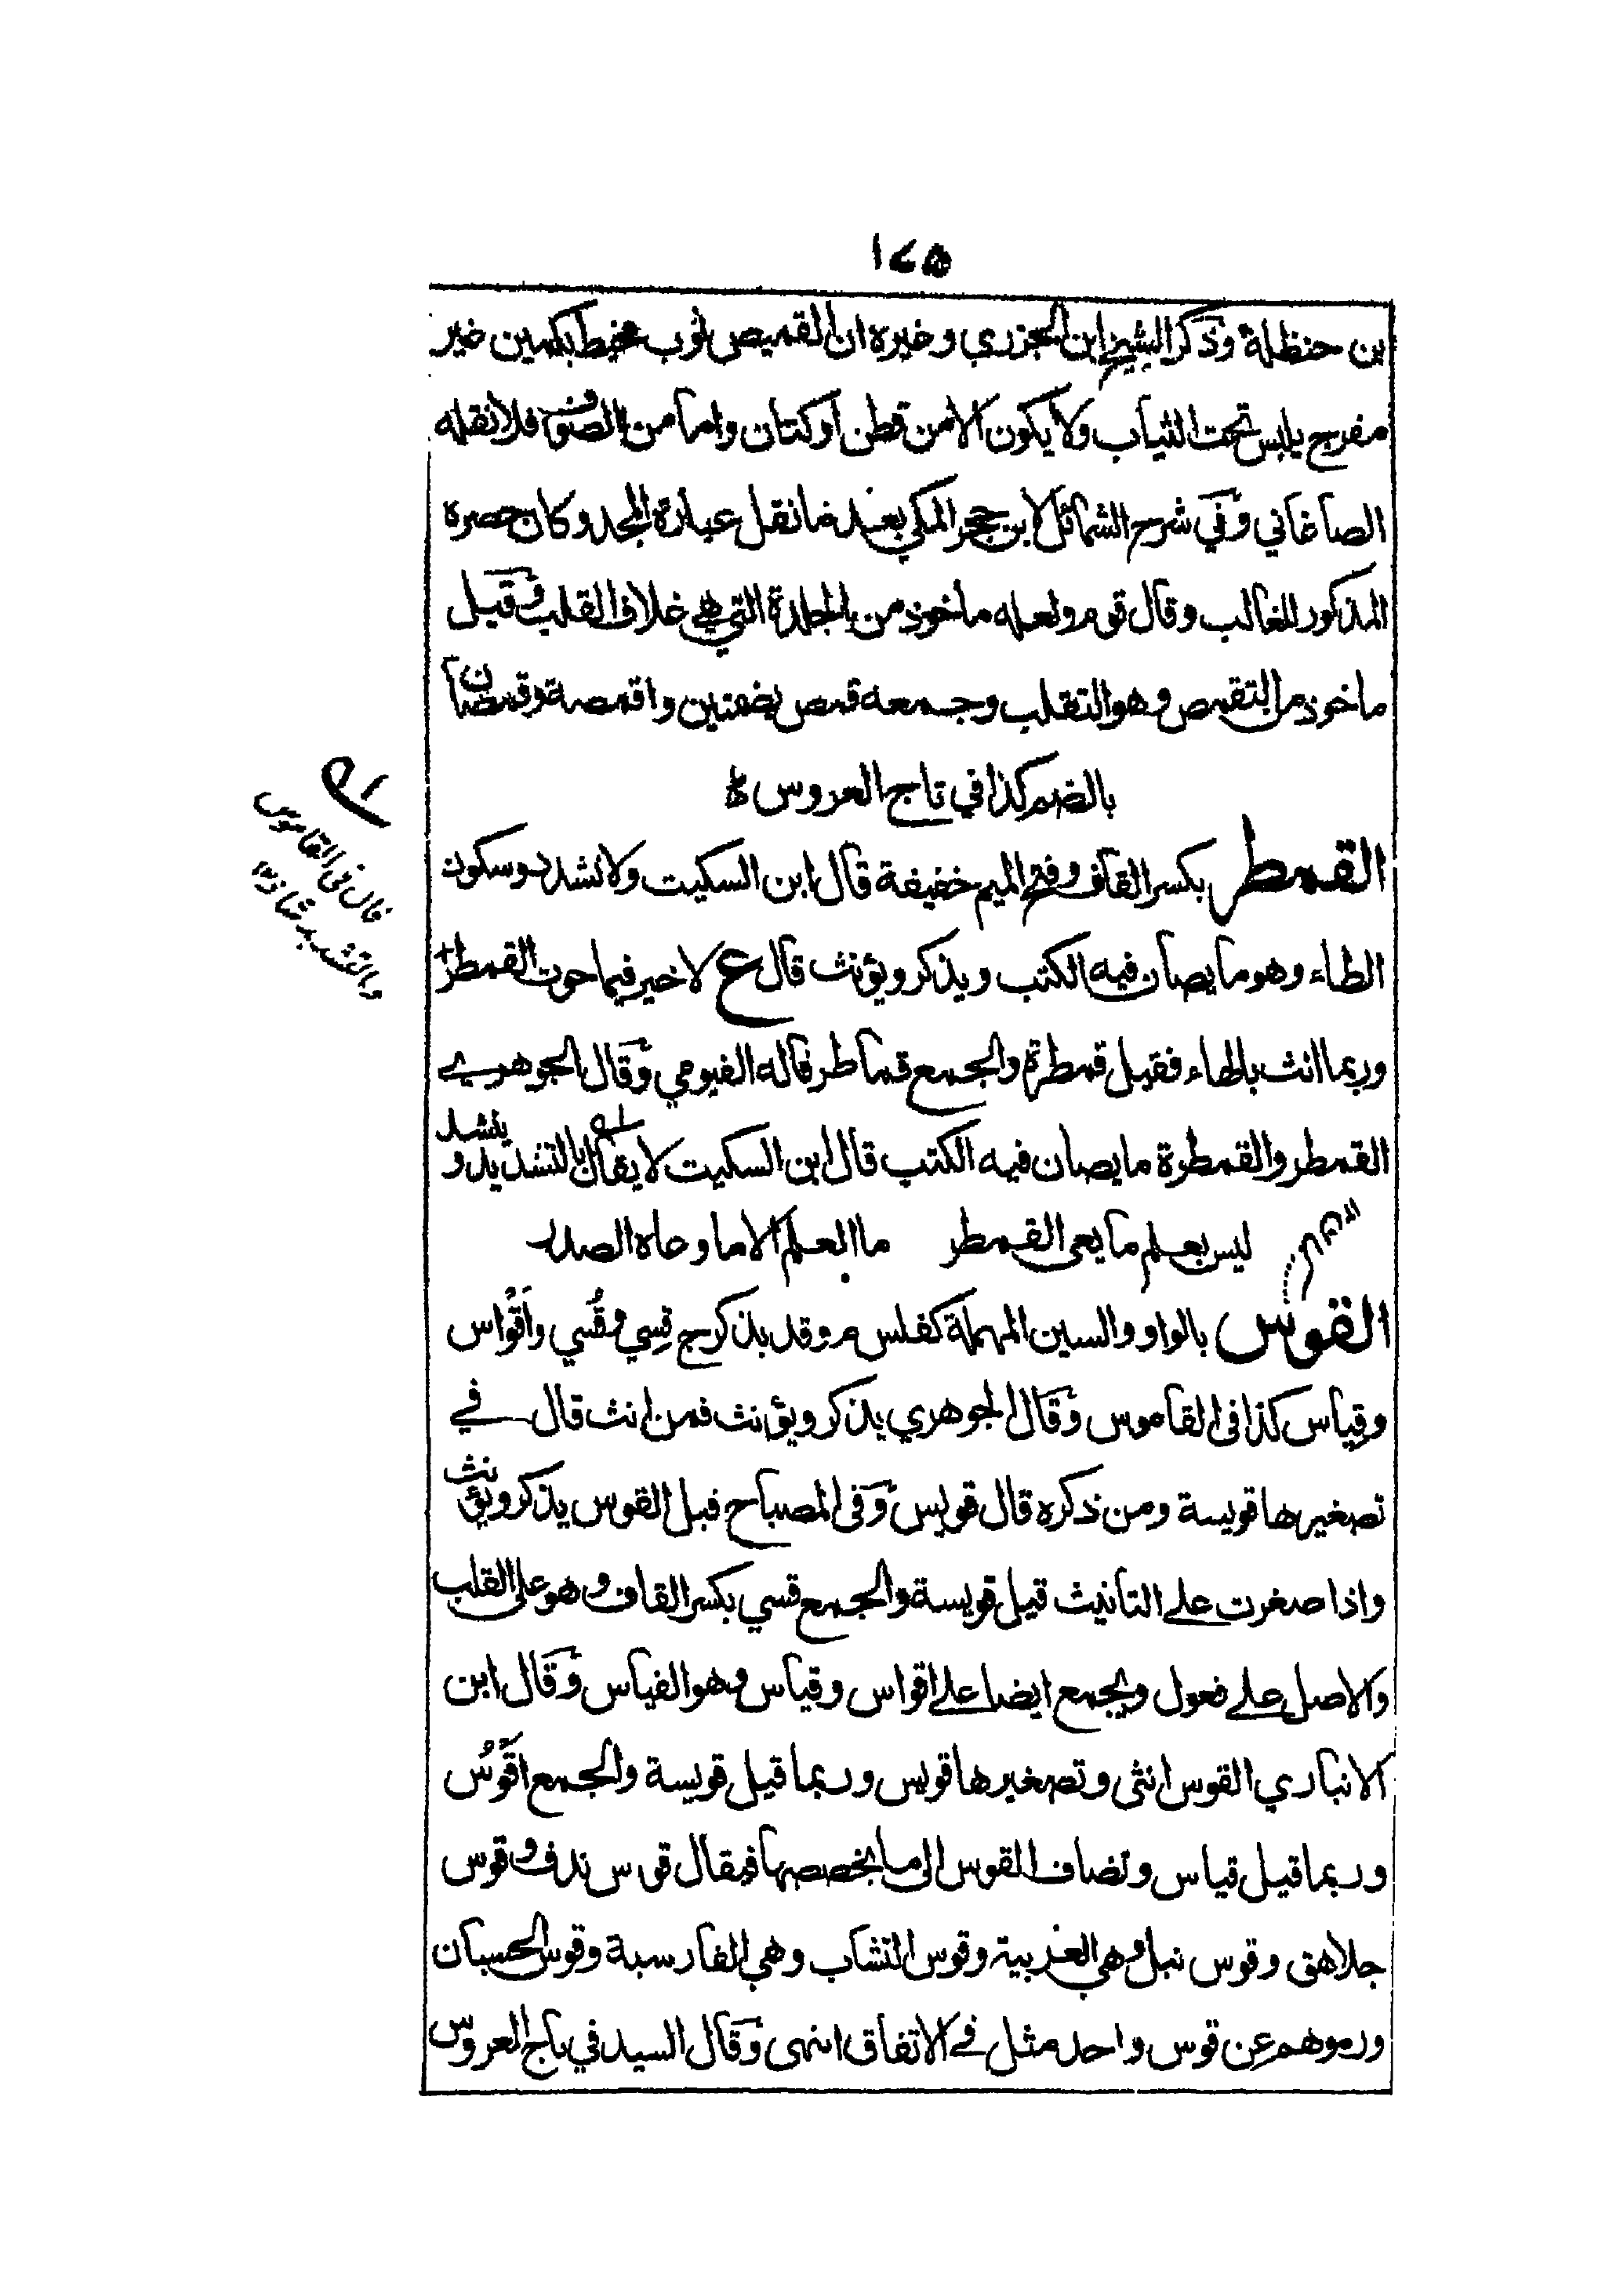 ١٤٥
بن حنظلة وذكر الشيخ ابن الجزري وغيره ان القميص ثوب مخيط بكمين غير
مفرج يلبس تحت الثياب ولا يكون الا من قطن او كتان واما من الصوف فلا نقله
الصاغاني وفي شرح الشمائل لابن حجر المكي بعد ما نقل عبارة المجد وكان حصره
المذكور للغالب وقال قوم ولعله ماخوذ من الجلدة التي هي غلاف القلب وقيل
ماخوذ من التقمص وهو التقلب وجمعه قمص بضمتين واقمصة وقمصان
بالضم كذا في تاج العروس
القمطر بكسر القاف وفتح الميم خفيفة قال ابن السكيت ولا تشدد وسكون
الطاء وهو ما يصان فيه الكتب ويذكر ويؤنث قال ع لا خير فيما حوت القمطر
وربما انث بالهاء فقيل قمطرة والجمع قماطر قاله الفيومي وقال الجوهري
القمطر والقمطرة ما يصان فيه الكتب قال ابن السكيت لا يقال بالتشديد وينشد
ليس بعلم ما يعى القمطر ما العلم الا ما وعاه الصدر
القوس بالواو والسين المهملة كفلس م وقد يذكر ج قِسي وقُسي واَقْواس
وقِياس كذا في القاموس وقال الجوهري يذكر ويؤنث فمن انث قال في
تصغيرها قويسة ومن ذكره قال قويس وفي المصباح قيل القوس يذكر ويؤنث
واذا صغرت على التانيث قيل قويسة والجمع قسي بكسر القاف وهو على القلب
والاصل على فعول ويجمع ايضا على اقواس وقياس وهو القياس وقال ابن
الانباري القوس انثى وتصغيرها قويس وربما قيل قويسة والجمع اَقْوُس
وربما قيل قياس وتضاف القوس الى ما يخصصها فيقال قوس ندف وقوس
جلاهق وقوس نبل وهي العربية وقوس النشاب وهي الفارسية وقوس الحسبان
ورموهم عن قوس واحد مثل في الاتفاق انتهى وقال السيد في تاج العروس
قال في القاموس
وبالتشديد شاذ